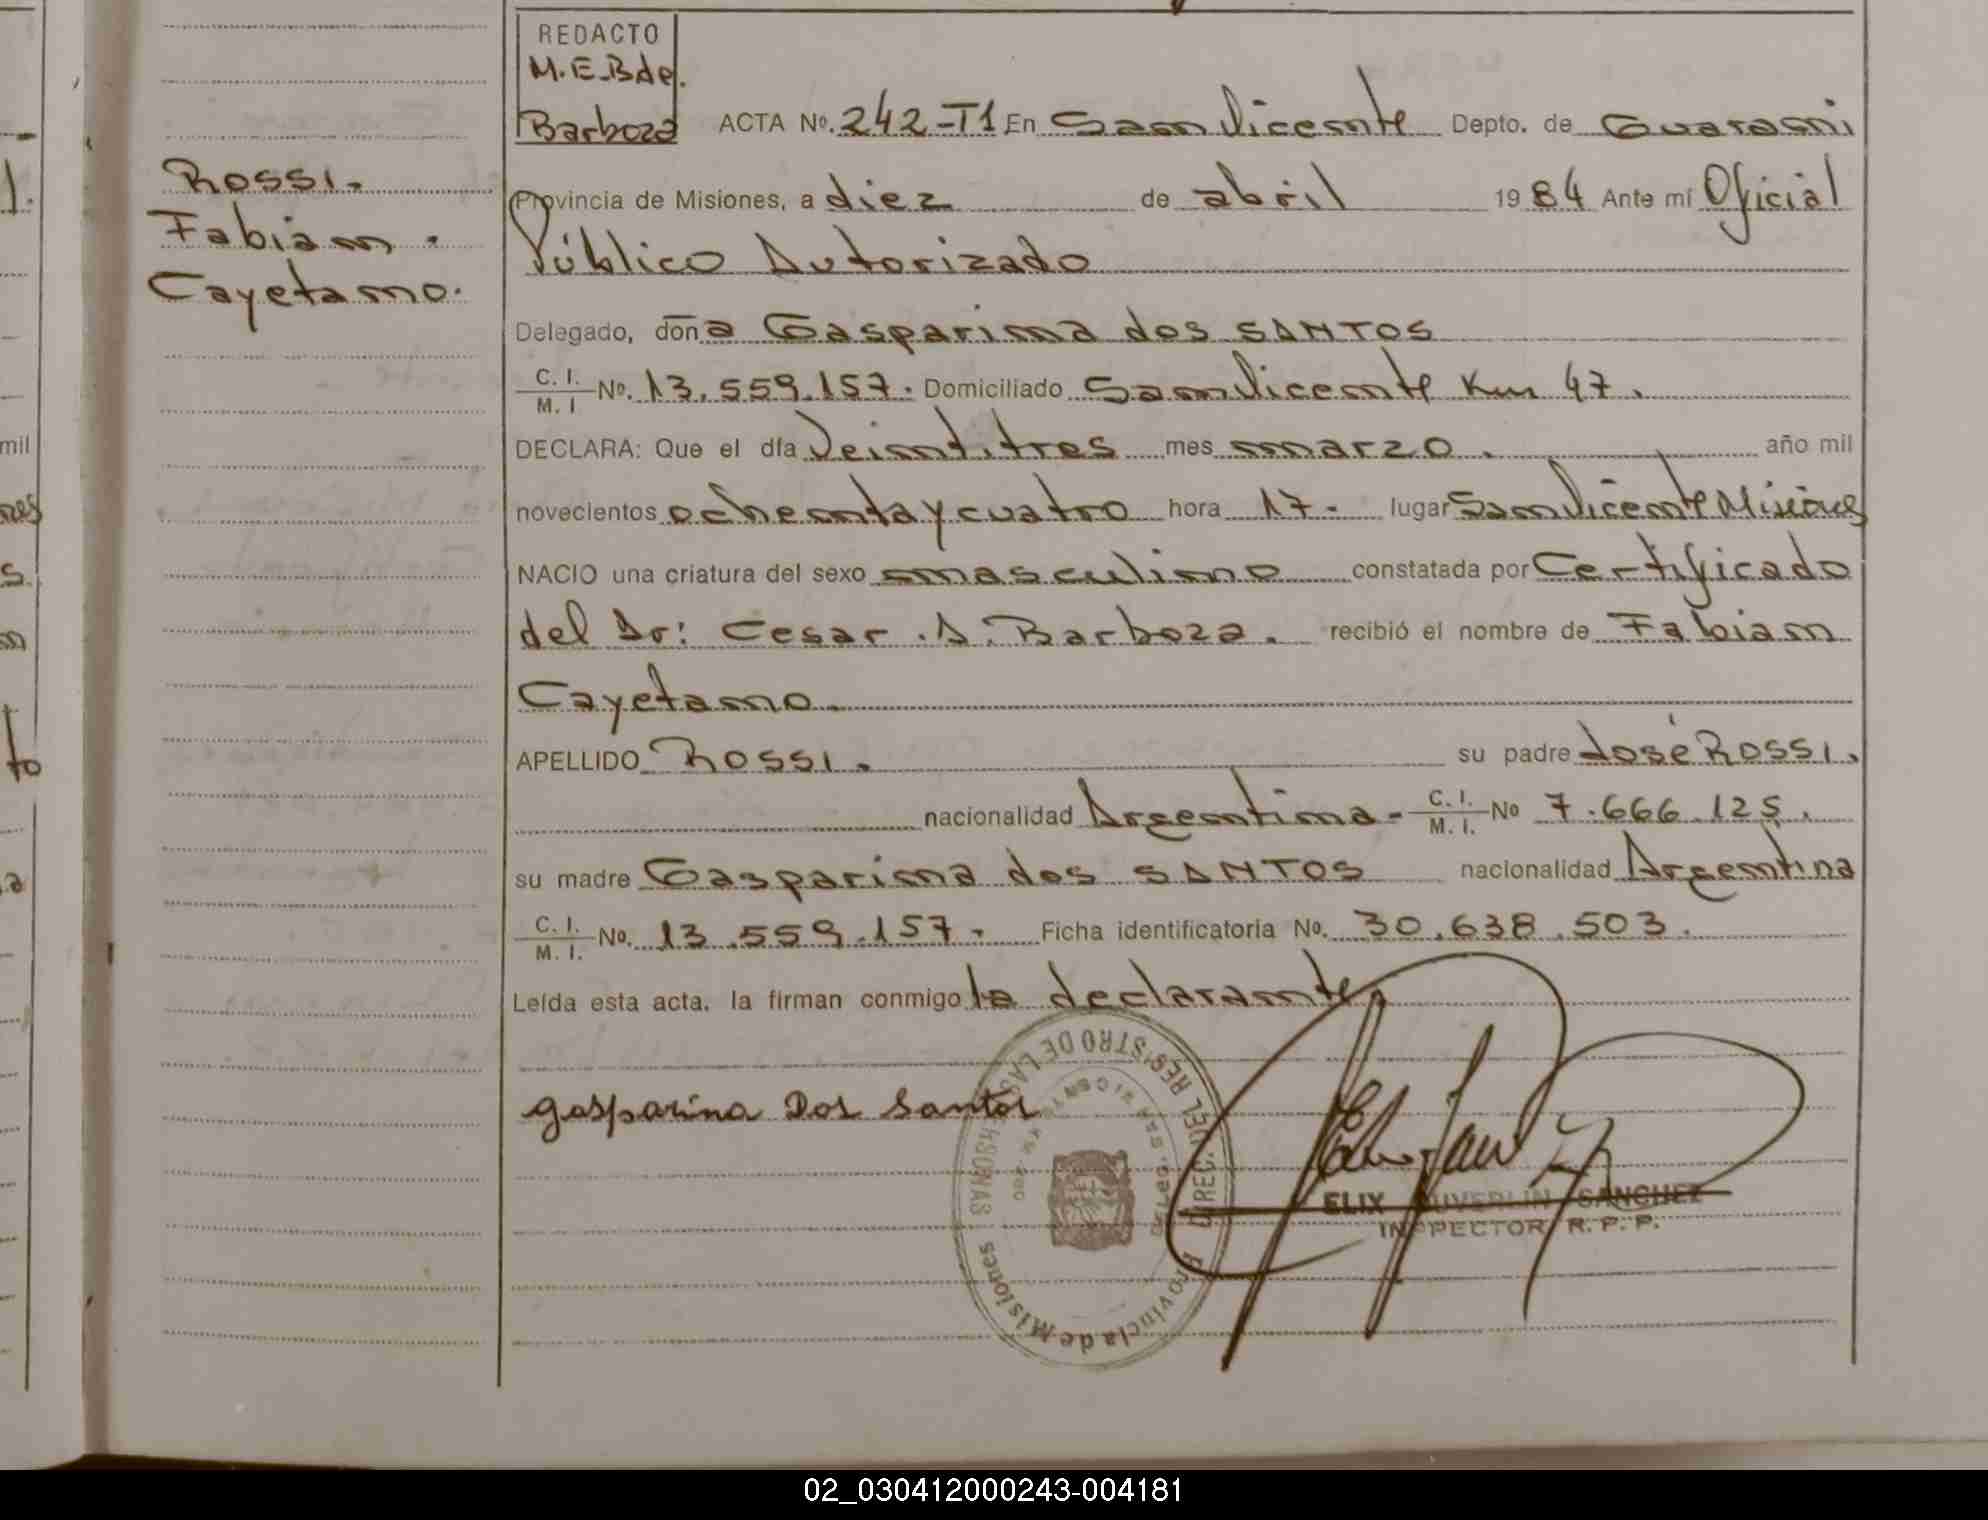 REDACTO
M.E.B de.
Barboza
ACTA Nº. 242-T1 En San Vicente Depto. de Guarani
Rossi.
Fabian.
Cayetano.
Provincia de Misiones, a diez de abril 1984 Ante mí Oficial
Público Autorizado
Delegado, doña Gasparina dos SANTOS
C. I. / M. I Nº. 13.559.157. Domiciliado San Vicente Km 47.
DECLARA: Que el día Veintitres mes marzo. año mil
novecientos ochenta y cuatro hora 17. lugar San Vicente Misiones
NACIO una criatura del sexo masculino constatada por Certificado
del Dr: Cesar .A. Barboza. recibió el nombre de Fabian
Cayetano.
APELLIDO Rossi. su padre José Rossi.
nacionalidad Argentina - C. I. / M. I. Nº 7.666.125.
su madre Gasparina dos SANTOS nacionalidad Argentina
C. I. / M. I. Nº. 13.559.157. Ficha identificatoria Nº. 30.638.503.
Leída esta acta, la firman conmigo la declarante
gasparina Dos Santos
DIREC. DEL REGISTRO DE LAS PERSONAS
Provincia de Misiones
ELIX SANCHEZ
INSPECTOR R. P. P.
02_030412000243-004181